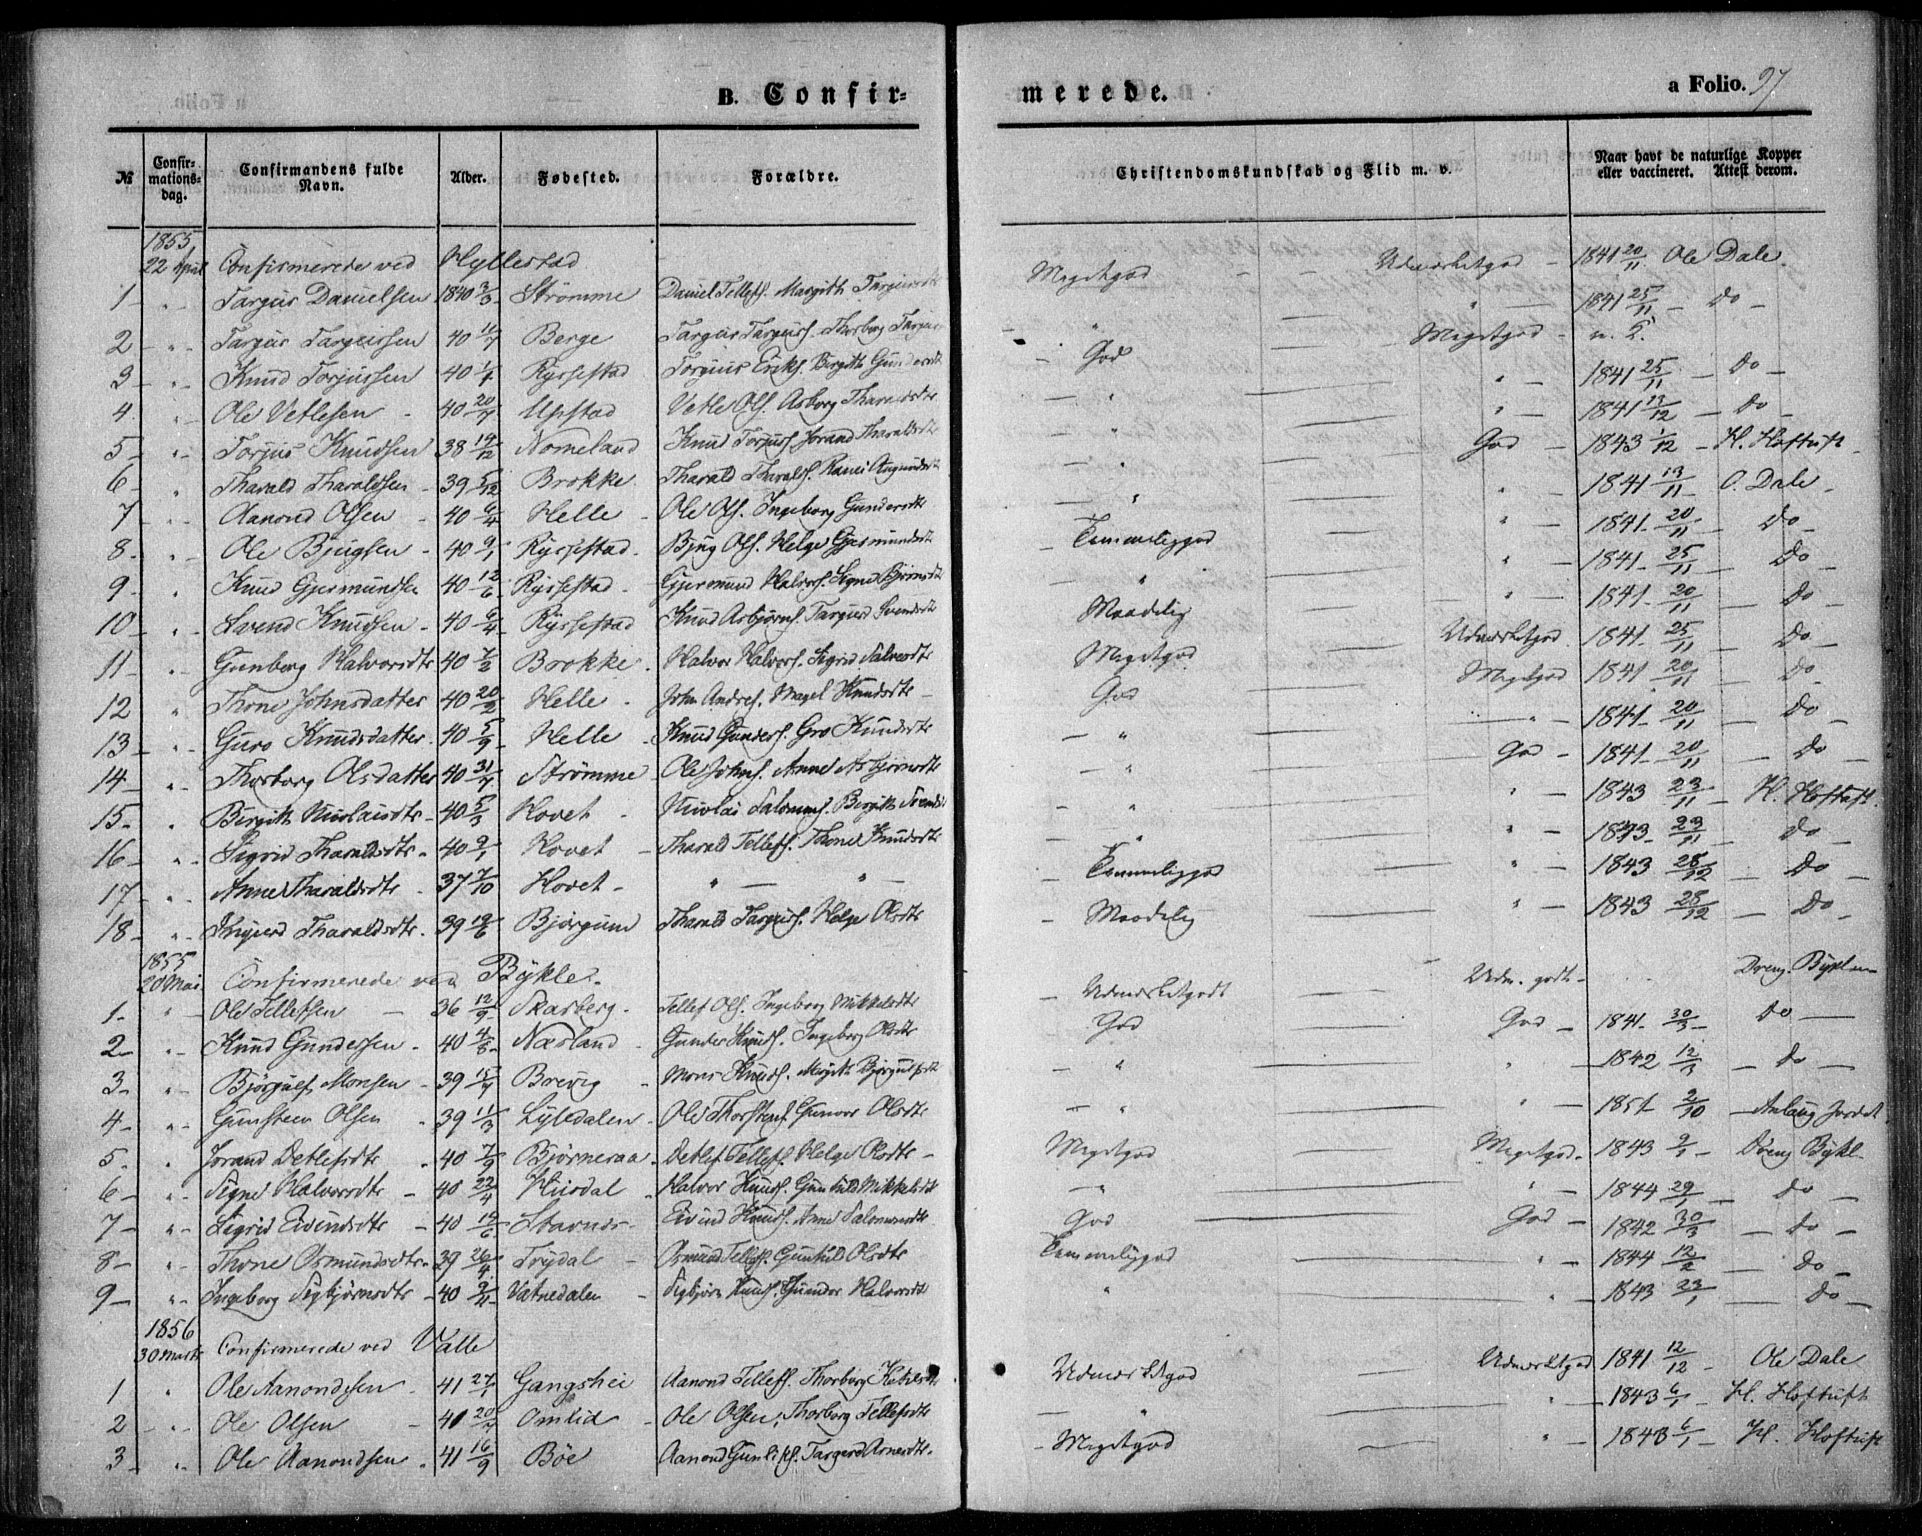 B. Confir= merede. a Folio. 97
№ Confir=mations=dag. Confirmandens fulde Navn. Alder. Fødested. Forældre. Christendomskundskab og Flid m. v. Naar havt de naturlige Kopper eller vaccineret. Attest derom.
1855
22 April Confirmerede ved Hyllestad
1 " Targus Danielsen 1840 3/3 Strømme Daniel Tellefs. Margith Megetgod Udmærketgod 1841 20/11 Ole Dale
2 " Targus 40 11/7 Berge Thorborg " " 1841 25/11 Do
3 " Knud Torjussen 40 1/1 Ryssestad Torjus Eriks. Birgith God Megetgod
4. " Ole Vetlesen 40 20/7 Upstad Vetle Ols. Asborg " " 1841 25/11 Do
5 " Torjus Knudsen 38 19/12 Nomeland Knud Torjus. Jorand Tharaldsdtr " " 1841 13/12 Do
6 " Tharald Tharaldsen 39 5/12 Brokke Tharald Tharalds. " God 1843 1/12 H. Hoftuft
7 " Aanond Olsen 40 6/4 Helle Ole Ols. Ingeborg Gundersdtr " " 1841 13/11 O. Dale
8 " Ole Bjugsen 40 9/1 Ryssestad Bjug Ols. Helge Gjermundsdtr Temmeliggod " 1841 20/11 Do
9 " Knud Gjermundsen 40 12/6 Ryssestad Gjermund Halvors. Signe Bjørnsdtr " " 1841 25/11 Do
10 " Svend Knudsen 40 6/4 Ryssestad Knud Asbjørns. Targerd Svendsdtr Maadelig " 1841 20/11 Do
11 " Gunborg Halvorsdtr 40 7/3 Brokke Halvor Halvors. Sigrid Salvesdtr Megetgod Udmærketgod 1841 25/11 Do
12 " Thone Johnsdatter 40 20/2 Helle John Andres. Knudsdtr God Megetgod 1841 20/11 Do
13 " Guro Knudsdatter 40 5/9 Helle Knud Gunders. Gro Knudsdtr " " 1841 20/11 Do
14 " Thorborg Olsdatter 40 31/7 Strømme Ole Johns. Anne Asbjørnsdtr " God 1841 20/11 Do
15 " Birgith Nicolaisdtr 40 5/3 Hovet Nicolai Birgith Svendsd " " 1843 23/11 H. Hoftuft
16 " Sigrid Tharaldsdtr 40 9/1 Hovet Tharald Tellefs. Thone Knudsdtr " " 1843 23/11 Do
17 " Anne Tharaldsdtr 37 7/10 Hovet " " Temmeliggod " 1843 28/12 Do
18 " Tharaldsdtr 39 19/6 Bjørgum Tharald Targus. Helge Olsdtr Maadelig " 1843 28/12 Do
1855
20 Mai Confirmerede ved Bykle.
1 " Ole Tellefsen 36 12/9 Skarberg Tellef Ols. Ingeborg Mikkelsdtr Udmærketgodt Udm. godt Dreng. Byklum
2 " Knud Gundersen 40 4/8 Næsland Gunder Knuds. Ingeborg Olsdtr God God 1841 30/3 Do
3 " Bjørgulf Monsen 39 15/9 Brevig Mons Knuds. Margith Bjørgulfsdtr " " 1842 12/3 Do
4 " Gunsteen Olsen 39 11/3 Lyledalen Ole Thorstens. Gunvor Olsdtr " " 1851 2/10
5 " Jorand Detlefsdtr 40 7/9 Bjørneraa Detlef Tellefs. Helge Olsdtr Megetgod Megetgod 1843 2/1 Dreng Bykl
6 " Signe Halvorsdtr 40 22/4 Husdal Halvor Knuds. Gunhild Mikkelsdtr " " 1844 29/1 Do
7 " Sigrid Eivindsdtr 40 14/6 Stavnes Eivind Knuds. Anne Salomonsdtr God God 1842 30/3 Do
8 " Thone Osmundsdtr 39 26/9 Trydal Osmund Tellefs. Gunhild Olsdtr Temmeliggod " 1844 12/2 Do
9 " Ingeborg Sigbjørnsdtr 40 9/11 Vatnedalen Sigbjørn Knuds. Gunvor Halvorsdtr " " 1843 23/1 Do
1856
30 Marts Confirmerede ved Valle
1 " Ole Aanondsen 41 27/1 Gangshei Aanond Tellefs. Thorborg Ketilsdtr Udmærketgod Udmærketgod 1841 12/12 Ole Dale
2 " Ole Olsen 41 20/7 Omlid Ole Olsen, Thorborg Tellefsdtr " " 1843 6/1 H. Hoftuft
3 " Ole Aanondsen 41 16/9 Bøe Aanond Gunleiks. Targerd Arnesdtr Megetgod " 1843 6/1 H. Hoftuft